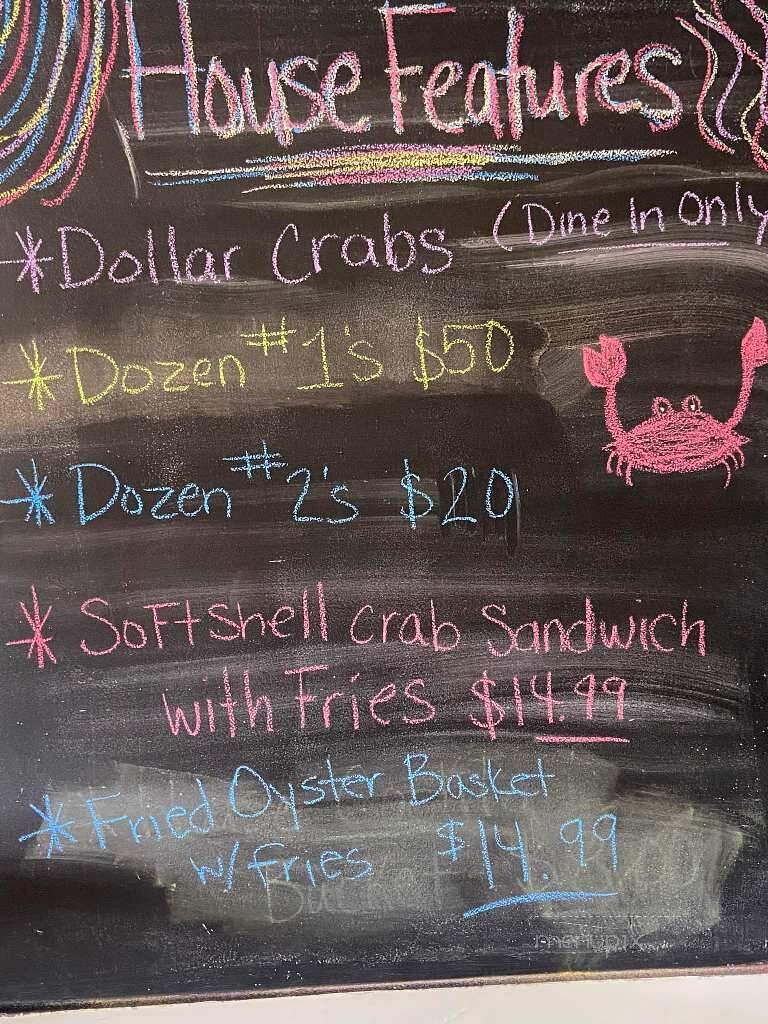 House Features
*Dollar Crabs (Dine In Only
*Dozen #1's $50
*Dozen #2's $20
*Softshell Crab Sandwich
with Fries $14.99
*Fried Oyster Basket
w/ fries $14.99
menupix